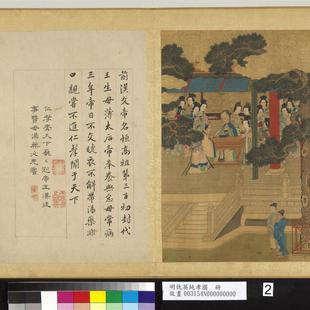 前漢文帝名恒高祖第三子初封代
王生母薄太后帝奉養無怠母常病
三年帝目不交睫衣不解帶湯藥非
口親嘗不進仁孝聞于天下
仁孝臨天下巍巍冠百王漢廷
事賢母湯藥必先嘗
明仇英純孝圖 冊
故畫003154N000000000
2